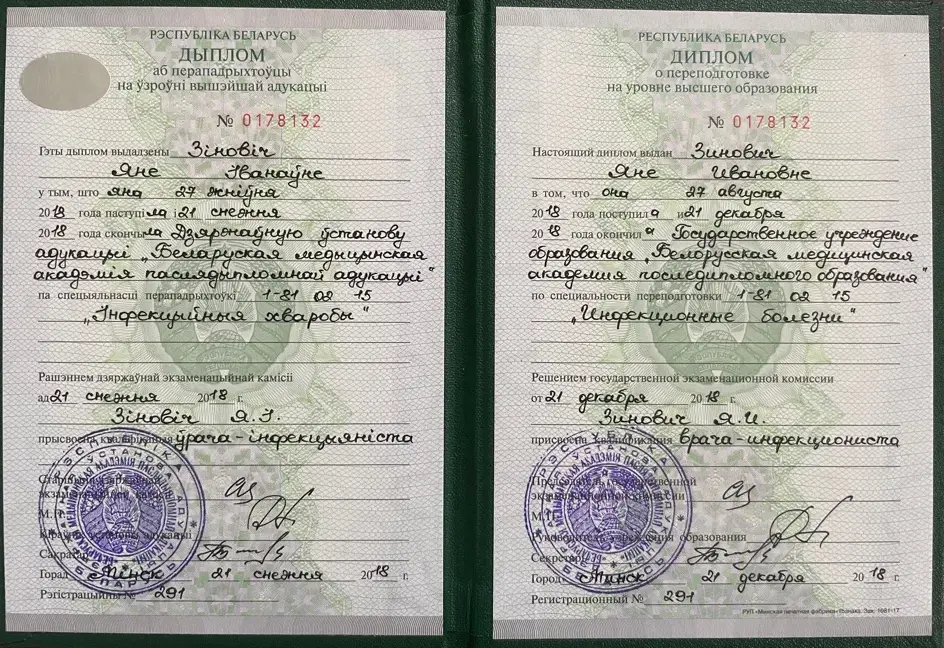 РЭСПУБЛІКА БЕЛАРУСЬ
ДЫПЛОМ
аб перападрыхтоўцы
на ўзроўні вышэйшай адукацыі
№ 0178132
Гэты дыплом выдадзены Зіновіч
Яне Іванаўне
у тым, што яна 27 жніўня
2018 года паступіла і 21 снежня
2018 года скончыла Дзяржаўную ўстанову
адукацыі „Беларуская медыцынская
акадэмія паслядыпломнай адукацыі"
па спецыяльнасці перападрыхтоўкі 1-81 02 15
„Інфекцыйныя хваробы"
Рашэннем дзяржаўнай экзаменацыйнай камісіі
ад 21 снежня 2018 г.
Зіновіч Я.І.
прысвоена кваліфікацыя ўрача-інфекцыяніста
Старшыня дзяржаўнай
экзаменацыйнай камісіі
М.П.
Кіраўнік установы адукацыі
Сакратар
Горад Мінск 21 снежня 2018 г.
Рэгістрацыйны № 291
РЕСПУБЛИКА БЕЛАРУСЬ
ДИПЛОМ
о переподготовке
на уровне высшего образования
№ 0178132
Настоящий диплом выдан Зинович
Яне Ивановне
в том, что она 27 августа
2018 года поступила и 21 декабря
2018 года окончила Государственное учреждение
образования „Белорусская медицинская
академия последипломного образования"
по специальности переподготовки 1-81 02 15
„Инфекционные болезни"
Решением государственной экзаменационной комиссии
от 21 декабря 2018 г.
Зинович Я.И.
присвоена квалификация врача-инфекциониста
Председатель государственной
экзаменационной комиссии
М.П.
Руководитель учреждения образования
Секретарь
Город Минск 21 декабря 2018 г.
Регистрационный № 291
РУП «Минская печатная фабрика» Гознака. Зак. 1661-17